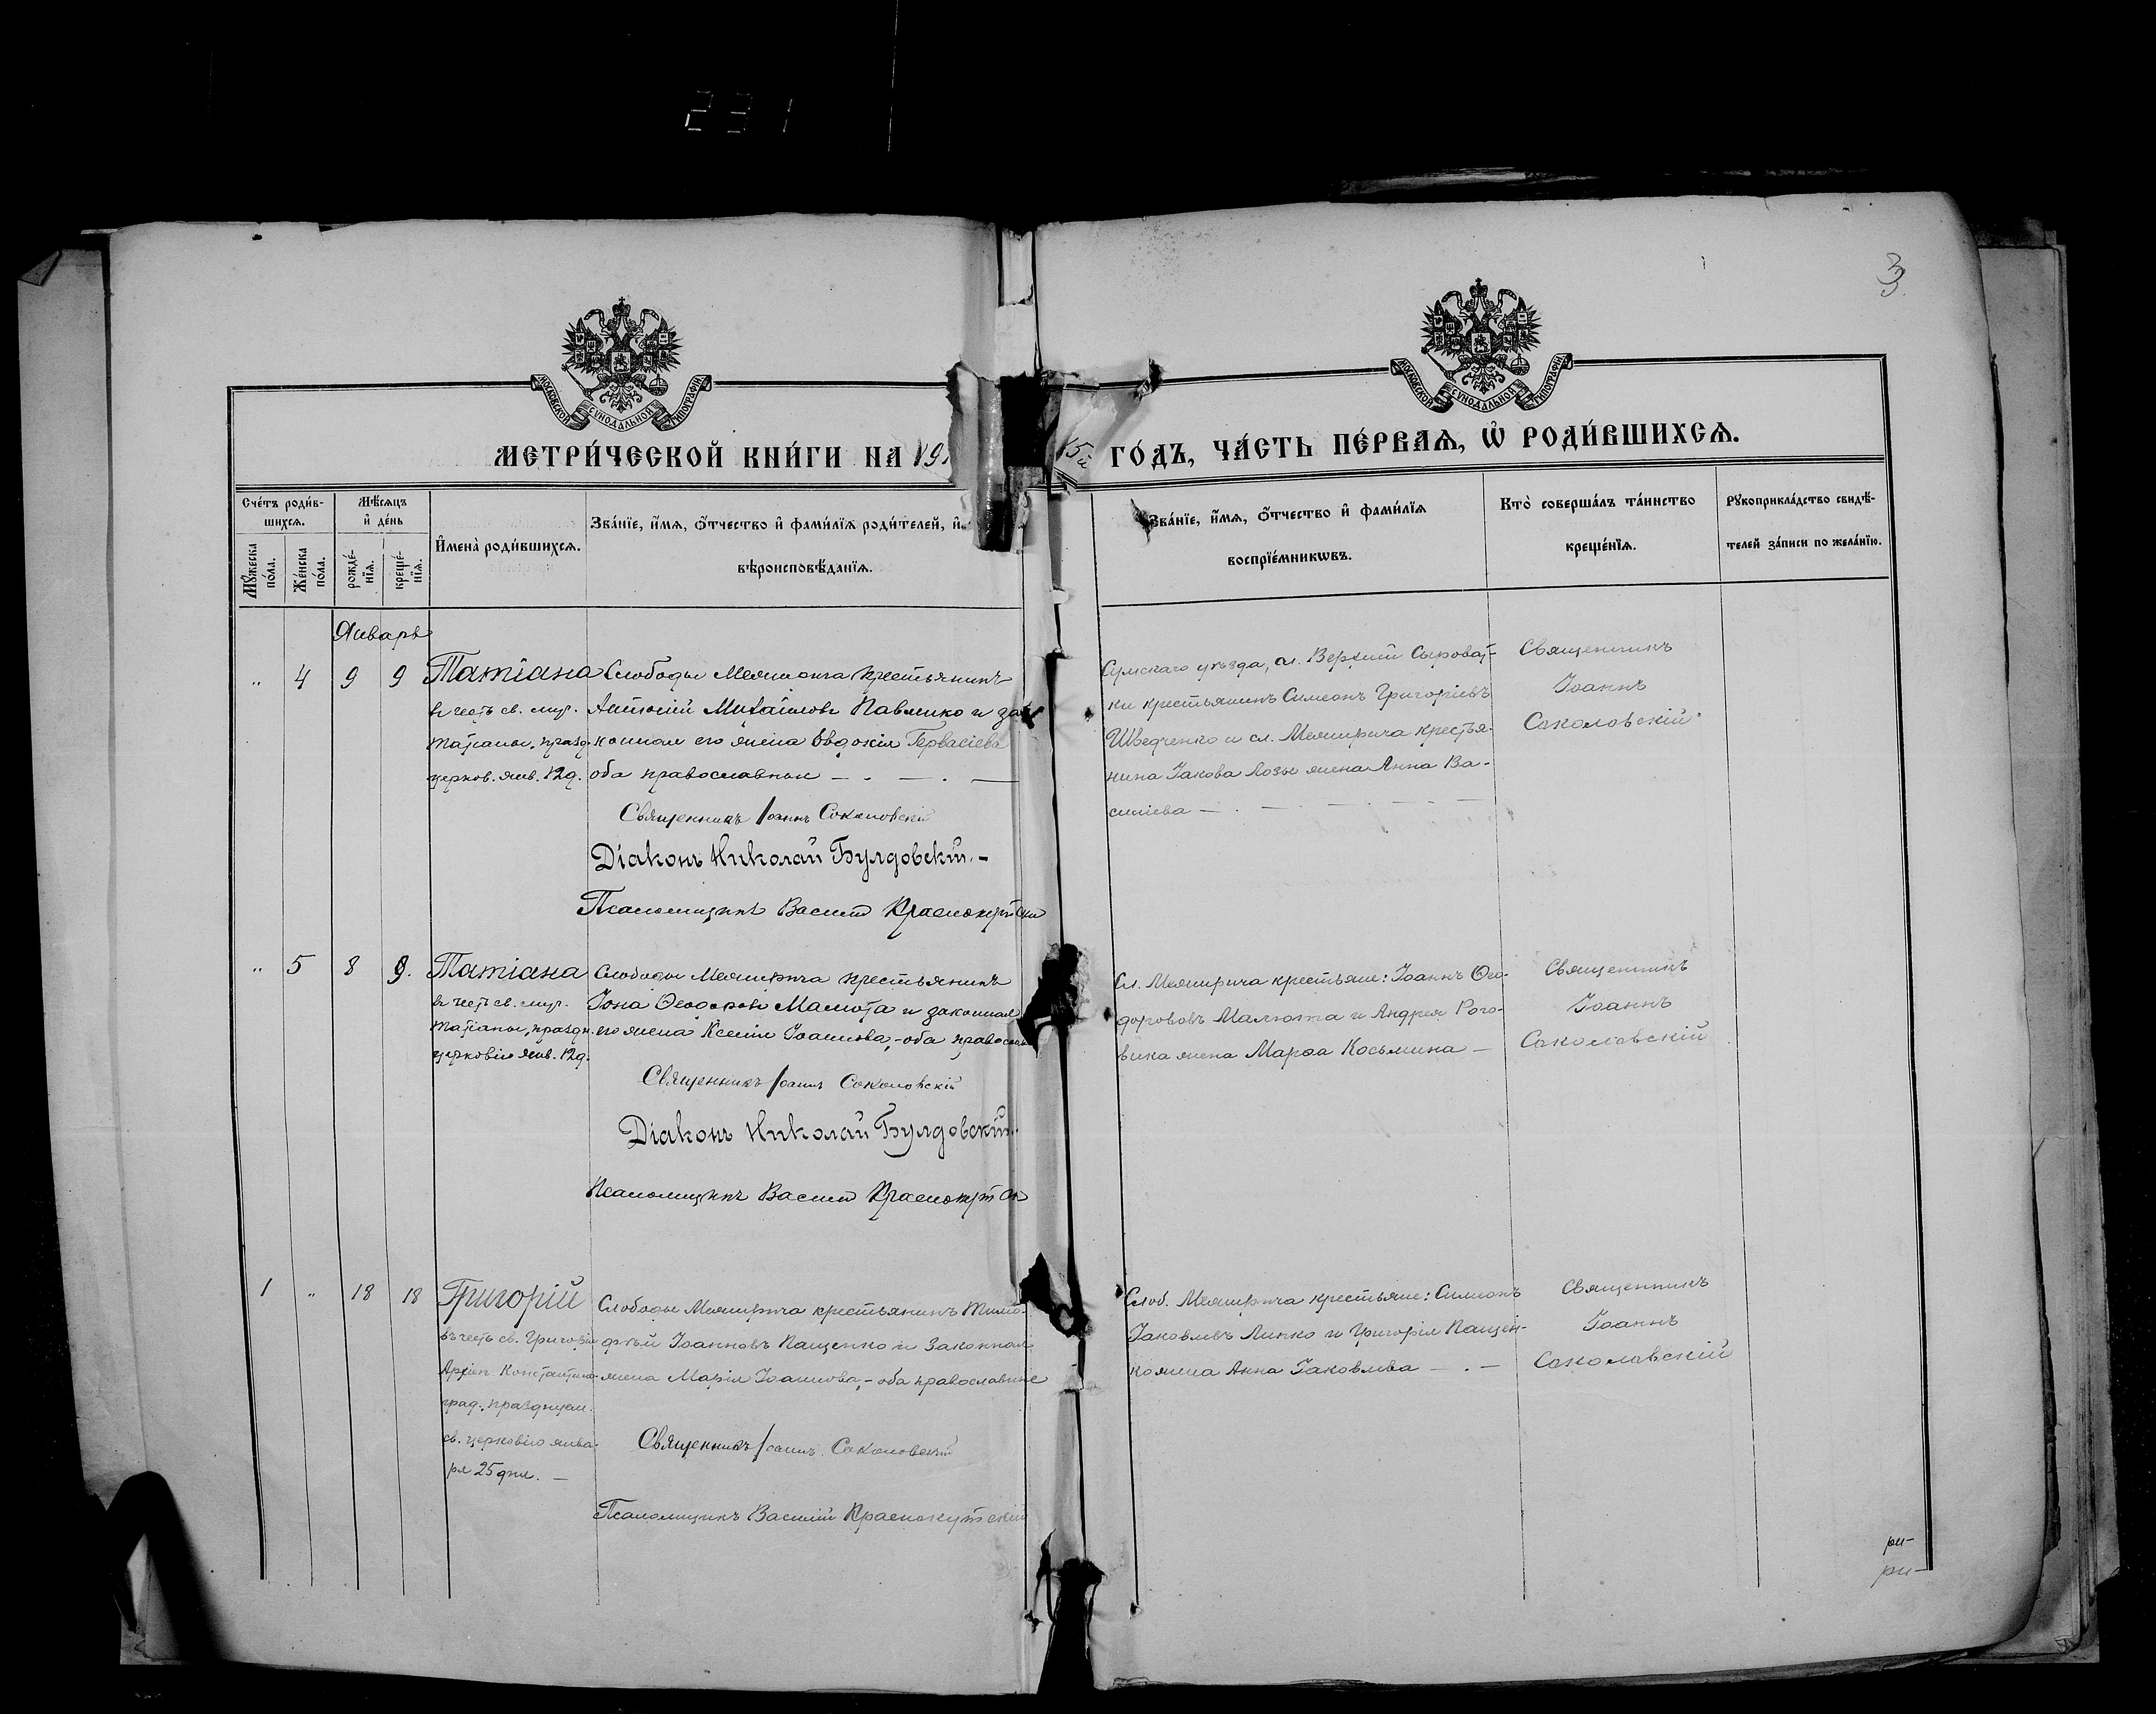 231
3
МОСКОВСКОЙ СУНОДАЛЬНОЙ ТИПОГРАФІИ
МОСКОВСКОЙ СУНОДАЛЬНОЙ ТИПОГРАФІИ
МЕТРИ́ЧЕСКОЙ КНИ́ГИ НА 191
5й ГО́ДЪ, ЧА́СТЬ ПЕ́РВАѦ, Ѡ҆ РОДИ́ВШИХСѦ.
Сче́тъ роди́в-
шихсѧ.
Мѣ́сѧцъ
и҆ де́нь
Мꙋ́жеска по́ла.
Же́нска по́ла.
рожде́-
нїѧ.
креще́-
нїѧ.
И҆мена̀ роди́вшихсѧ.
Зва́нїе, и҆́мѧ, ѻ҆́тчество и҆ фами́лїѧ роди́телей, и҆
вѣроисповѣ́данїѧ.
Зва́нїе, и҆́мѧ, ѻ҆́тчество и҆ фами́лїѧ
воспрїе́мникѡвъ.
Кто̀ соверша́лъ та́инство
креще́нїѧ.
Рꙋкоприкла́дство свидѣ́-
телей за́писи по жела́нїю.
Январь
„ 4 9 9 Татіана
въ честь св. муч.
Татіаны, празд.
церков. янв. 12 д.
Слободы Межирича крестьянинъ
Антоній Михаиловъ Павленко и за
конная его жена Евдокія Гервасіева
оба православные — . — . —
Священникъ Іоаннъ Соколовскій
Діаконъ Николай Булдовскій. –
Псаломщикъ Василій Краснокутскій
Сумскаго уѣзда, сл. Верхней Сыроват-
ки крестьянинъ Симеонъ Григоріевъ
Шведченко и сл. Межирича крестья-
нина Іакова Лозы жена Анна Ва-
силіева — . — . — . —
Священникъ
Іоаннъ
Соколовскій
„ 5 8 9. Татіана
въ честь св. муч.
Татіаны, праздн.
церковію янв. 12 д.
Слободы Межирича крестьянинъ
Іона Ѳеодоровъ Малюта и законная
его жена Ксенія Іоаннова, – оба правосл
Священникъ Іоаннъ Соколовскій
Діаконъ Николай Булдовскій.
Псаломщикъ Василій Краснокутск
Сл. Межирича крестьяне: Іоаннъ Ѳео-
доровъ Малюта и Андрея Рого-
вика жена Марѳа Косьмина —
Священникъ
Іоаннъ
Соколовскій
1 „ 18 18 Григорій
въ честь св. Григорія
Архіеп. Константино-
град., празднуем.
св. церковію янва-
ря 25 дня. —
Слободы Межирича крестьянинъ Тимо-
фей Іоанновъ Пащенко и законная
жена Марія Іоаннова, – оба православные
Священникъ Іоаннъ Соколовскій
Псаломщикъ Василій Краснокутскій
Слоб. Межирича крестьяне: Симеонъ
Іаковлевъ Линко и Григорія Пащен-
ко жена Анна Іаковлева — . —
Священникъ
Іоаннъ
Соколовскій
ри-
ри-